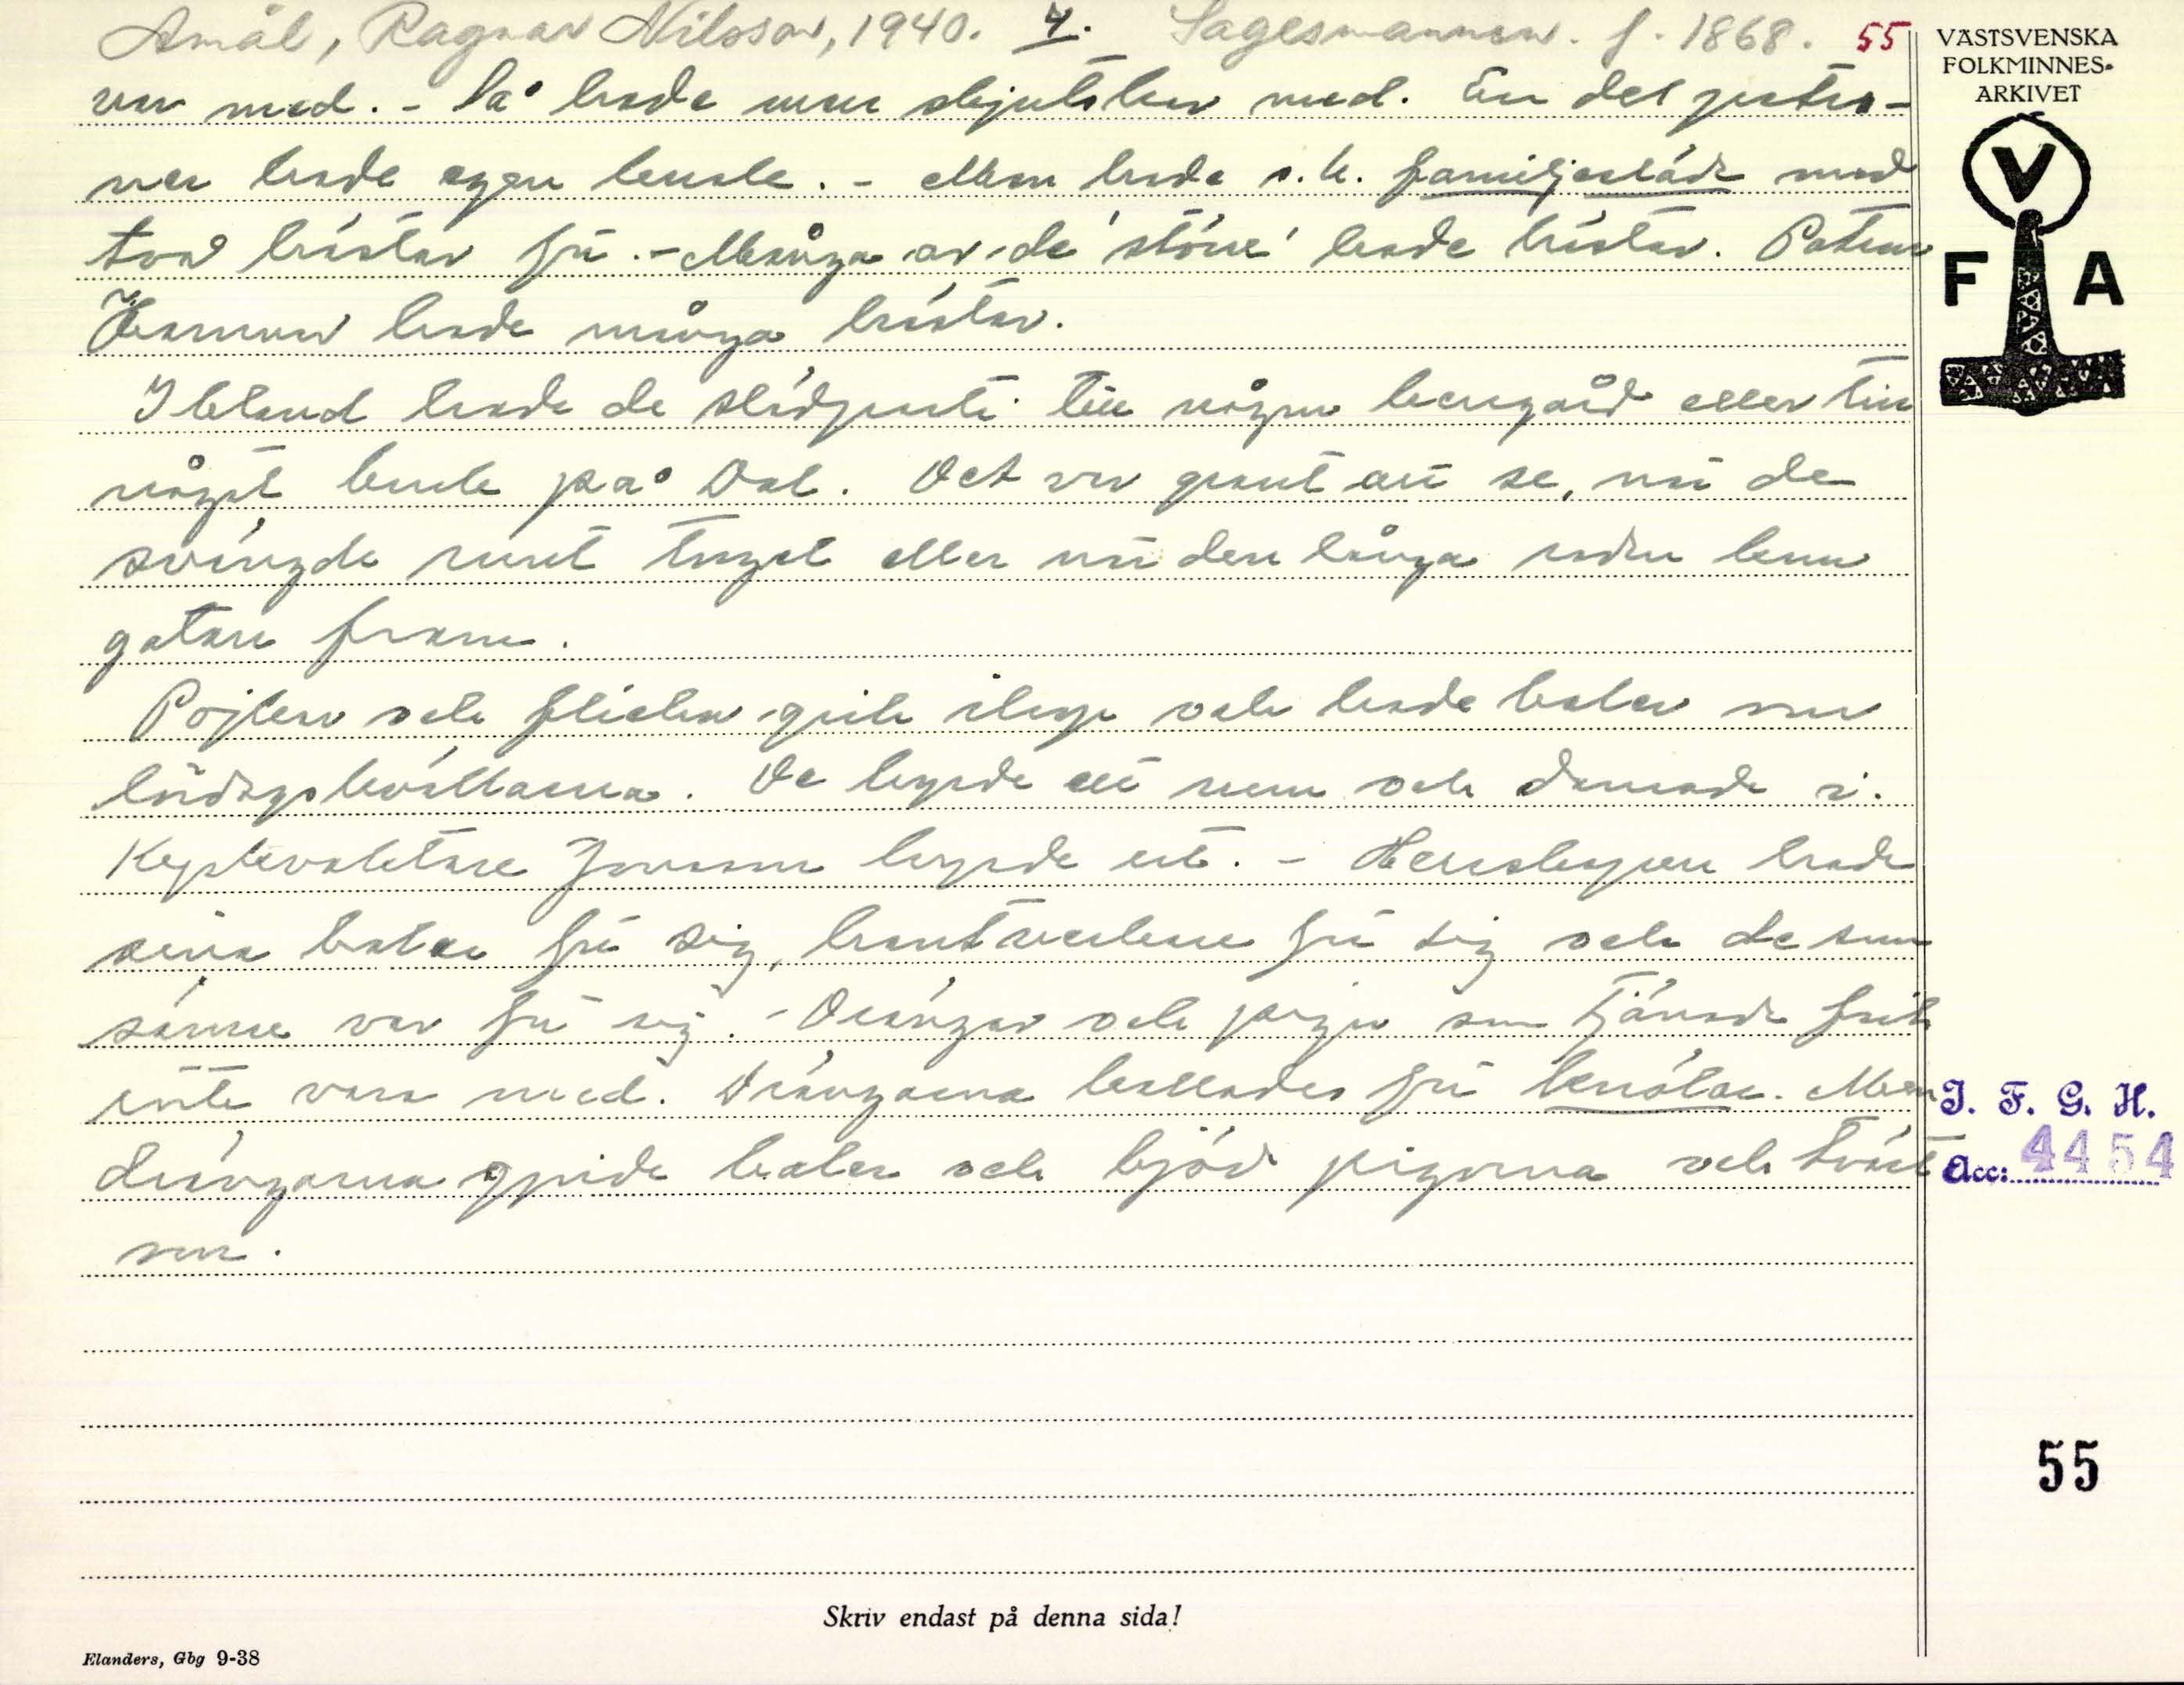 Åmål, Ragnar Nilsson, 1940. 4. Sagesmannen. f. 1868. 55
var med. - Så hade man skjutskar med. En del patro-
ner hade egen kusk. - Man hade s.k. familjesläde med
två hästar för. - Många av de 'större' hade hästar. Patron
hade många hästar.
Ibland hade de slädparti till någon herrgård eller till
något på Dal. Det var grant att se, när de
svängde runt torget eller när den långa raden kom
gatan fram.
Pojkar och flickor gick ihop och hade baler om
lördagskvällarna. De hyrde ett rum och dansade i.
Källarmästare hyrde ut. - Herrskapen hade
sina baler för sig, hantverkare för sig och de som
sämre var för sig. - Drängar och pigor som tjänade fick
inte vara med. Drängarna kallades för knölar. Men
drängarna gjorde baler och bjöd pigorna och tvärt
om.
VÄSTSVENSKA
FOLKMINNES-
ARKIVET
V
F A
I. F. G. H.
Acc: 4454
55
Skriv endast på denna sida!
Elanders, Gbg 9-38